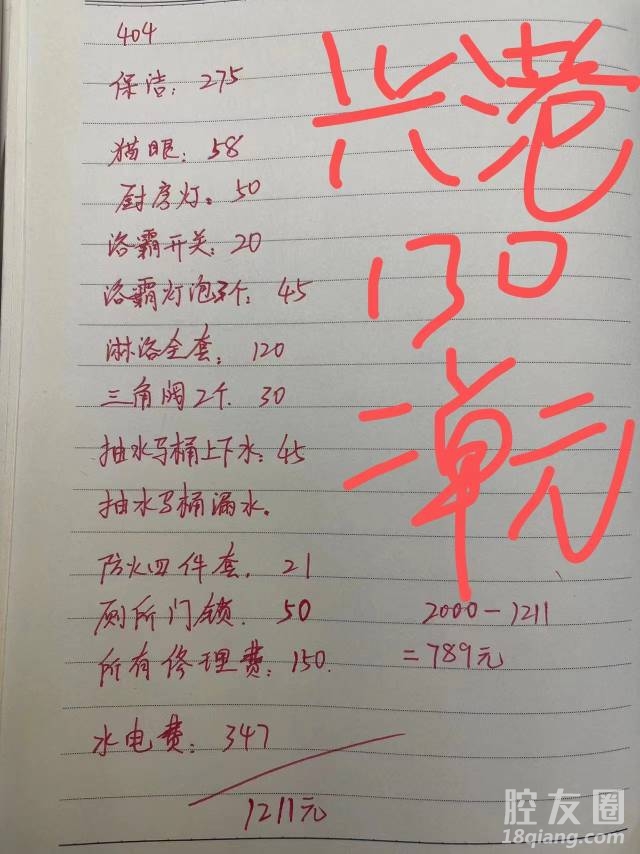 404
保洁：275
猫眼：58
厨房灯：50
浴霸开关：20
浴霸灯泡3个：45
淋浴全套：120
三角阀2个 30
抽水马桶上下水：45
抽水马桶漏水。
防火四件套，21
厕所门锁 50
所有修理费：150.
水电费：347
1211元
2000-1211
=789元
兴港
130
二单元
腔友圈
18qiang.com